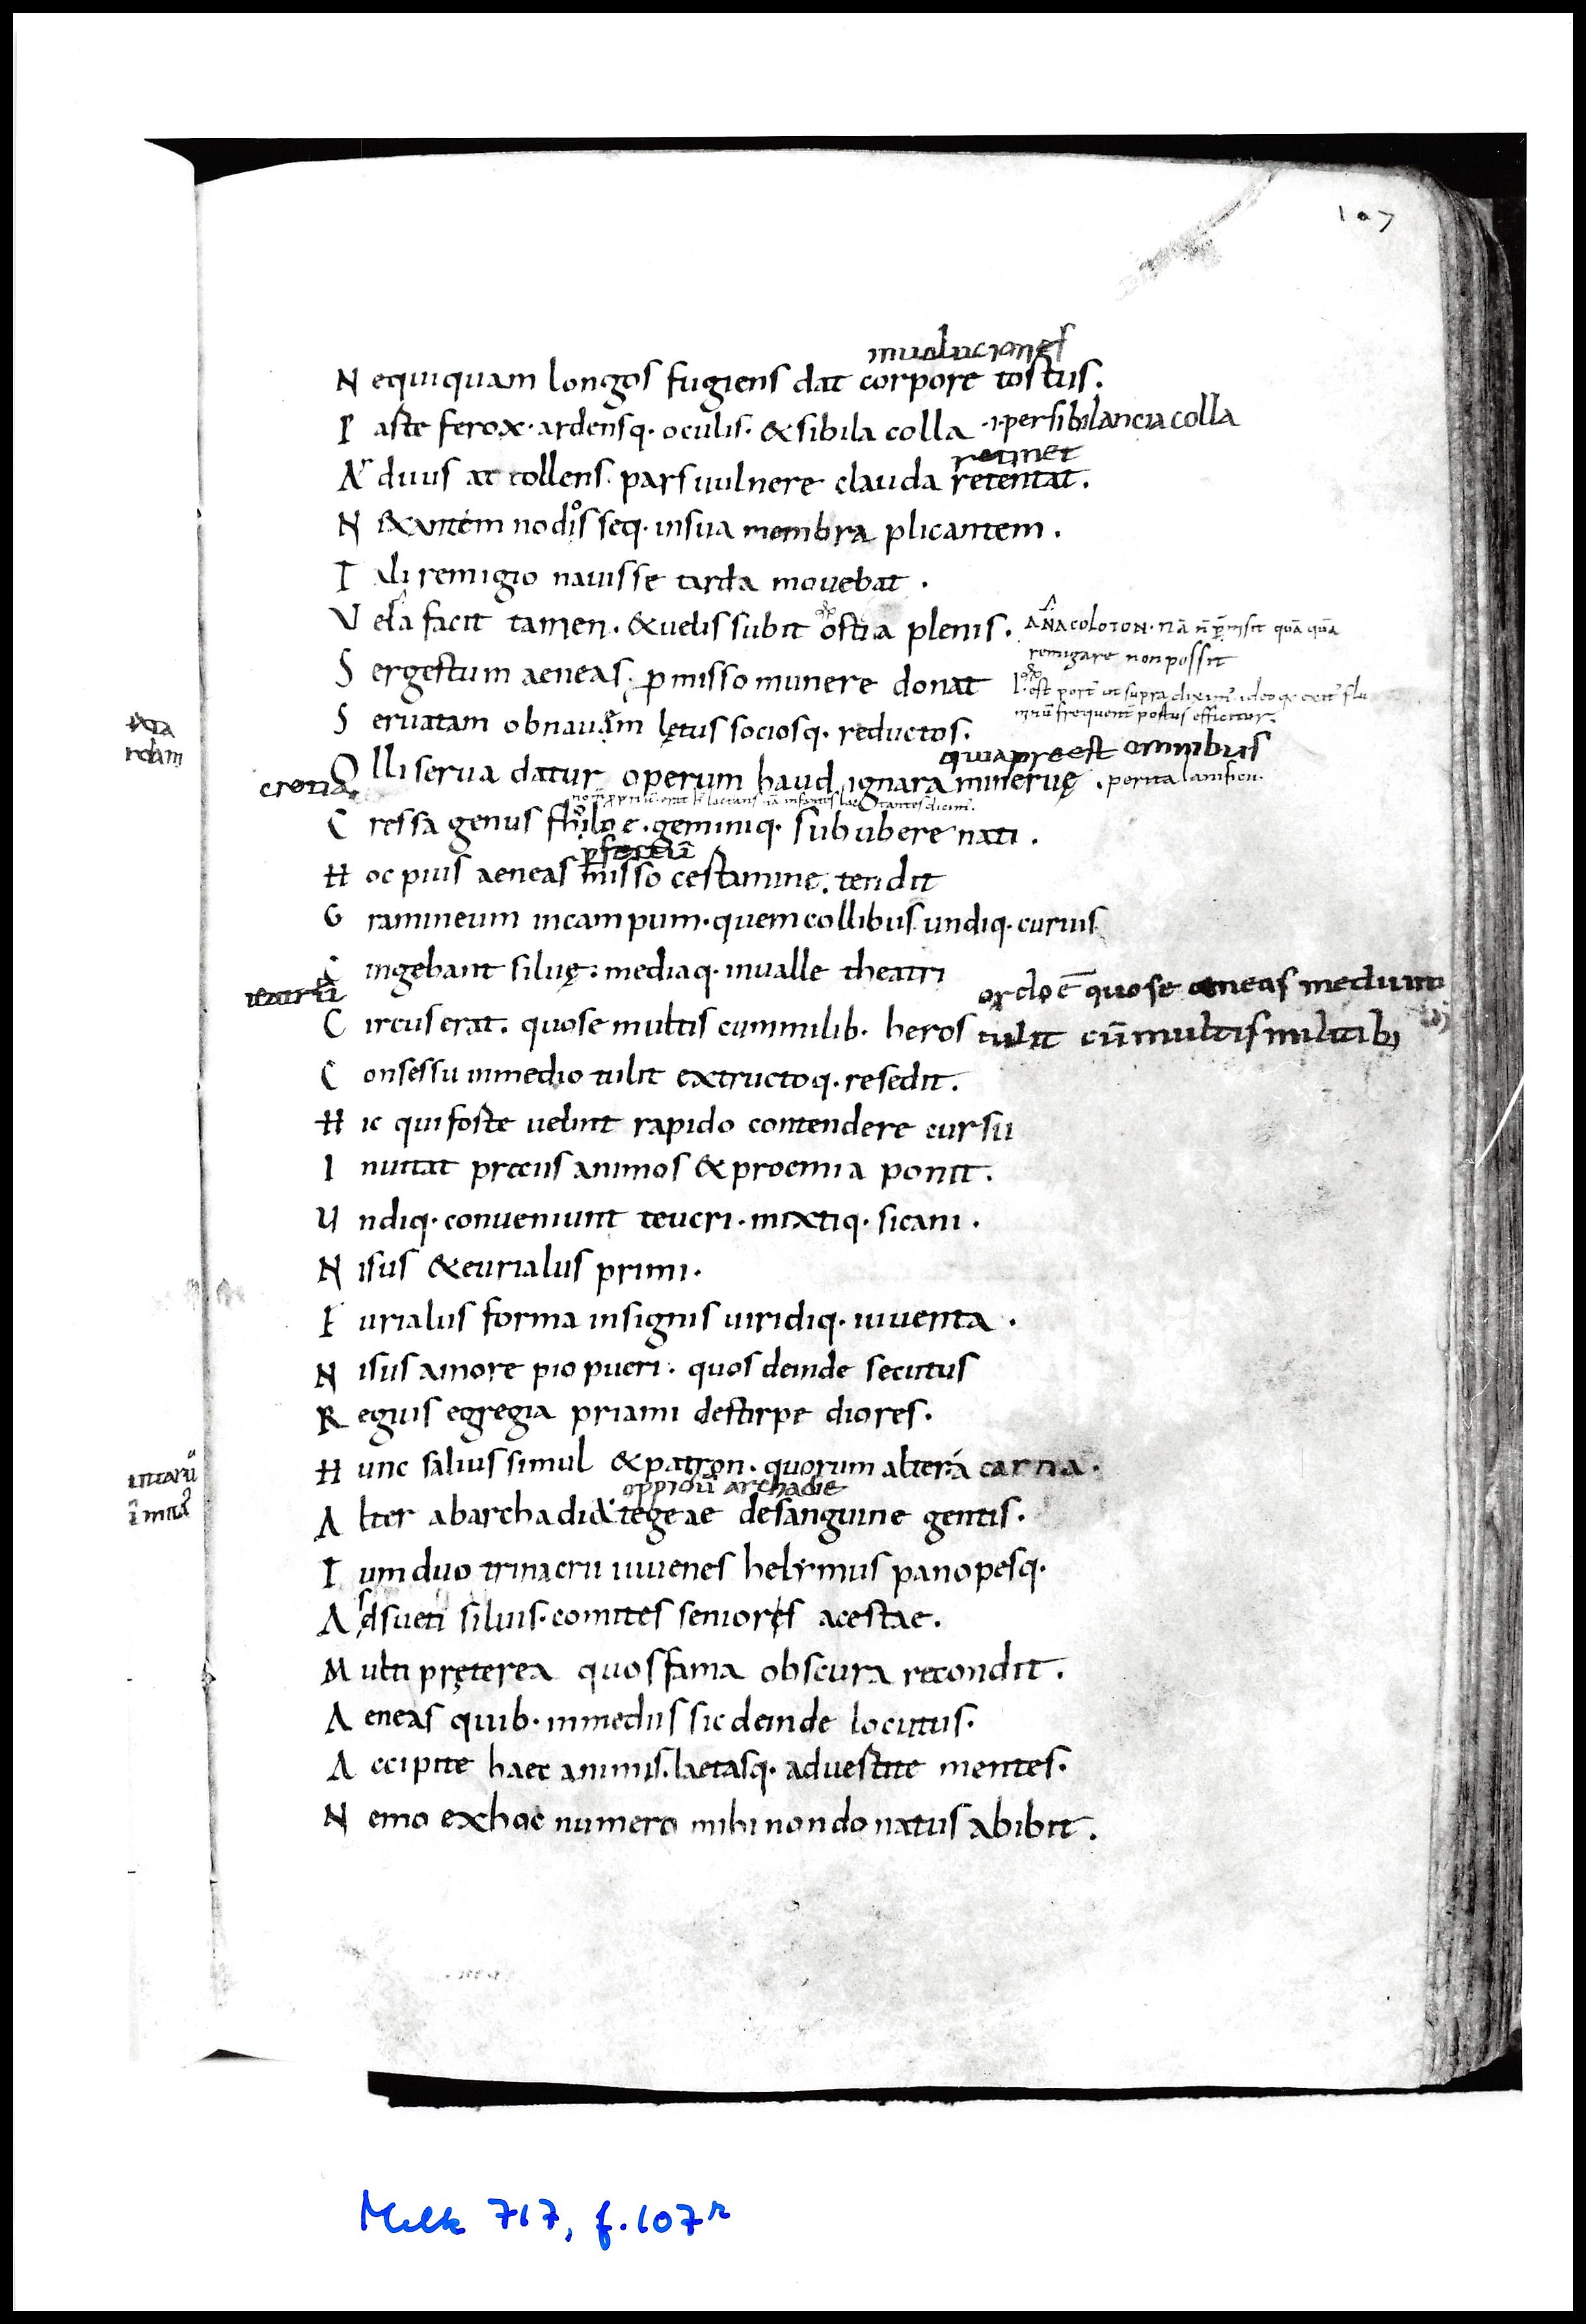 107
inuoluciones
N equiquam longos fugiens dat corpore tostus.
P aste ferox· ardensq· oculis· & sibila colla ·i· persibilancia colla
retinet
A rduus at tollens. pars uulnere clauda retentat.
N exantem nodis seq· insua membra plicantem.
T ali remigio nauisse tarda mouebat.
V ela facit tamen· & uelis subit ostia plenis. ANACOLOTON· nā n̄ p̄misit quā quā
remigare non possit
S ergestum aeneas· ꝓmisso munere donat
S eruatam obnauem lętus sociosq· reductos.
quia preest omnibus
O lli serua datur operum haud ignara mineruę. perita lanificii.
creta
C ressa genus fholoe· geminiq· sub ubere nati.
H oc pius aeneas misso certamine· tendit
G ramineum incampum· quem collibus undiq· curuis
C ingebant siluę: mediaq· inualle theatri
C ircus erat. quose multis cummilib· heros
ordo ē quo se aeneas medium
tulit cū multis militib;
C onsessu inmedio tulit extructoq· resedit.
H ic qui foste uelint rapido contendere cursu
I nuitat preciis animos & proemia ponit.
U ndiq· conueniunt teucri· mixtiq· sicani.
N isus & eurialus primi.
E urialus forma insignis uiridiq· iuuenta.
N isus amore pio pueri· quos deinde secutus
R egius egregia priami destirpe diores.
H unc salius simul & patron· quorum alter á carna.
oppidū archadie
A lter abarchadia tegeae desanguine gentis.
T um duo trinacrii iuuenes helymus panopesq·
A dsueti siluis· comites seniores acestae.
M ulti pręterea quos fama obscura recondit.
A eneas quib· inmediis sic deinde locutus.
A ccipite haec animis. laetasq· aduertite mentes.
N emo exhoc numero mihi non donatus abibit.
Melk 717, f. 107r